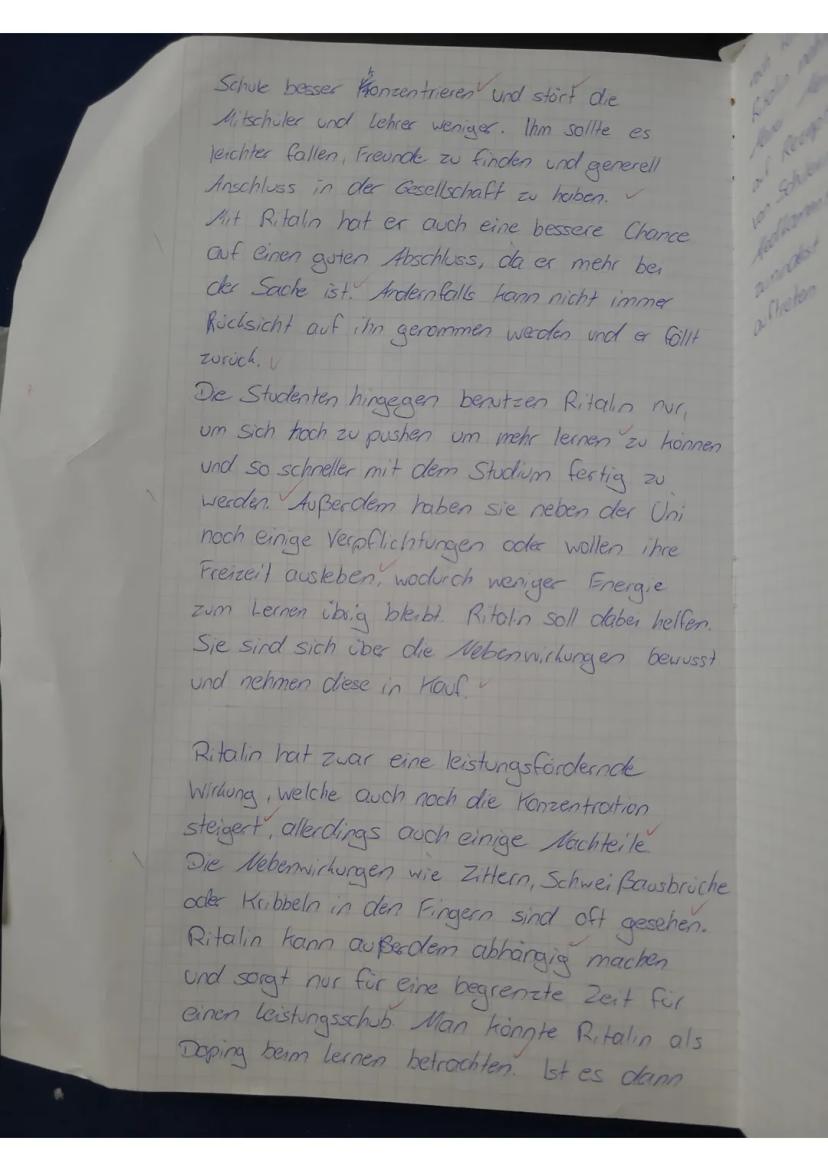 Schule besser konzentrieren und stört die
Mitschüler und Lehrer weniger. Ihm sollte es
leichter fallen, Freunde zu finden und generell
Anschluss in der Gesellschaft zu haben.
Mit Ritalin hat er auch eine bessere Chance
auf einen guten Abschluss, da er mehr bei
der Sache ist. Andernfalls kann nicht immer
Rücksicht auf ihn genommen werden und er fällt
zurück.
Die Studenten hingegen benutzen Ritalin nur,
um sich hoch zu pushen um mehr lernen zu können
und so schneller mit dem Studium fertig zu
werden. Außerdem haben sie neben der Uni
noch einige Verpflichtungen oder wollen ihre
Freizeit ausleben, wodurch weniger Energie
zum Lernen übrig bleibt. Ritalin soll dabei helfen.
Sie sind sich über die Nebenwirkungen bewusst
und nehmen diese in Kauf.
Ritalin hat zwar eine leistungsfördernde
Wirkung, welche auch noch die Konzentration
steigert, allerdings auch einige Nachteile
Die Nebenwirkungen wie Zittern, Schweißausbrüche
oder Kribbeln in den Fingern sind oft gesehen.
Ritalin kann außerdem abhängig machen
und sorgt nur für eine begrenzte Zeit für
einen Leistungsschub. Man könnte Ritalin als
Doping beim lernen betrachten. Ist es dann
noch
Ritalin
auf Rezept
von
zumindest
auftreten